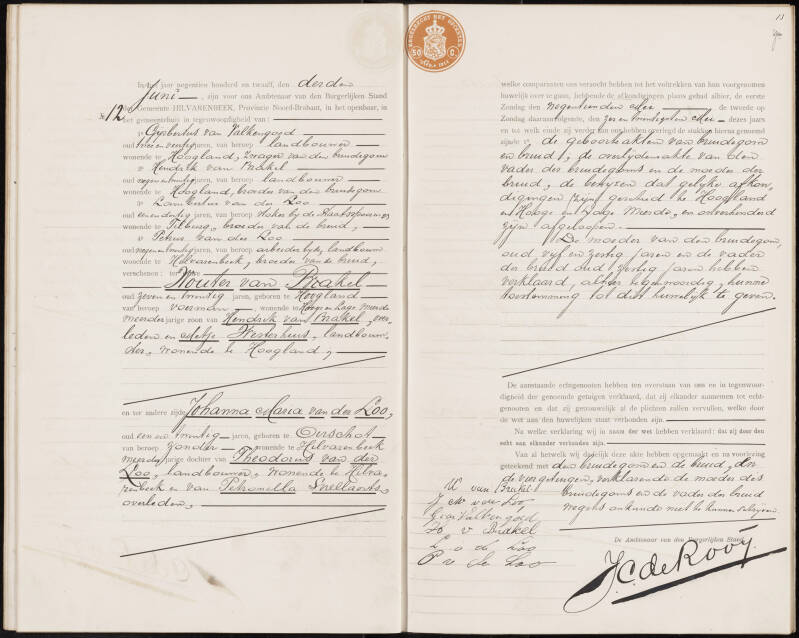 In het jaar negentien honderd en twaalf, den derden
Juni, zijn voor ons Ambtenaar van den Burgerlijken Stand
der Gemeente HILVARENBEEK, Provincie Noord-Brabant, in het openbaar, in
No 12 het gemeentehuis in tegenwoordigheid van:
1e Gysbertus van Valkengoed
oud jaren, van beroep landbouwer
wonende te Hoogland, zwager van den bruidegom
2e Hendrik van Brakel
oud jaren, van beroep landbouwer
wonende te Hoogland, broeder van den bruidegom
3e Lambertus van der Loo
oud een en dertig jaren, van beroep stoker bij de Staatsspoorwegen
wonende te Tilburg, broeder van de bruid,
4e Petrus van der Loo
oud jaren, van beroep arbeider bij den landbouw
wonende te Hilvarenbeek, broeder van de bruid,
verschenen: ter eene
Wouter van Brakel
oud zeven en twintig jaren, geboren te Hoogland
van beroep voerman, wonende te Hooge en Lage Mierde
meerderjarige zoon van Hendrik van Brakel, over-
leden en Westerhuis, landbouw-
ster, wonende te Hoogland,
en ter andere zijde Johanna Maria van der Loo,
oud een en twintig jaren, geboren te Oirschot
van beroep zonder, wonende te Hilvarenbeek
meerderjarige dochter van Theodorus van der
Loo, landbouwer, wonende te Hilva-
renbeek en van Petronella Snellaerts,
overleden,
13
50 C.
welke comparanten ons verzocht hebben tot het voltrekken van hun voorgenomen
huwelijk over te gaan, hebbende de afkondigingen plaats gehad alhier, de eerste
Zondag den negentienden Mei de tweede op
Zondag daaraanvolgende, den zes en twintigsten Mei dezes jaars
en tot welk einde zij verder aan ons hebben overlegd de stukken hierna genoemd
zijnde de geboorteakten van bruidegom
en bruid, de overlydensakte van den
vader des bruidegoms en de moeder der
bruid, de bewyzen dat gelyke afkon-
digingen zyn geschied te Hoogland
en Hooge en Lage Mierde, en onverhinderd
zyn afgeloopen.
De moeder van den bruidegom,
oud vyf en zestig jaren en de vader
der bruid oud zestig jaren hebben
verklaard, alhier tegenwoordig, hunne
toestemming tot dit huwelijk te geven.
De aanstaande echtgenooten hebben ten overstaan van ons en in tegenwoor-
digheid der genoemde getuigen verklaard, dat zij elkander aannemen tot echt-
genooten en dat zij getrouwelijk al de plichten zullen vervullen, welke door
de wet aan den huwelijken staat verbonden zijn.
Na welke verklaring wij in naam der wet hebben verklaard: dat zij door den
echt aan elkander verbonden zijn.
Van al hetwelk wij dadelijk deze akte hebben opgemaakt en na voorlezing
geteekend met den bruidegom en de bruid, en
de vier getuigen, verklarende de moeder des
bruidegoms en de vader der bruid
wegens onkunde niet te kunnen schryven.
De Ambtenaar van den Burgerlijken Stand,
W van Brakel
J M van der Loo
G van Valkengoed
H v Brakel
L v d Loo
P v de Loo
J.C. de Rooij